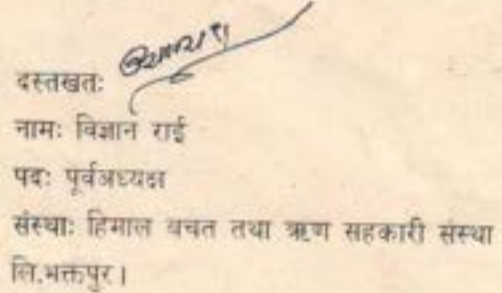 दस्तखतः
नामः विज्ञान राई
पदः पूर्वअध्यक्ष
संस्थाः हिमाल बचत तथा ऋण सहकारी संस्था
लि.भक्तपुर।